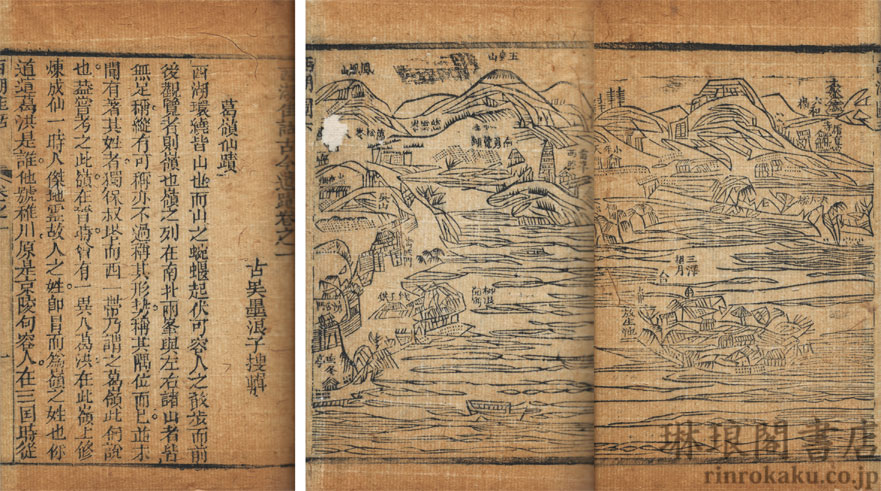 西湖佳話古今遺蹟卷之一
古吳墨浪子搜輯
葛嶺仙蹟
西湖環繞皆山也而山之蜿蜒起伏可容人之散步而前
後觀覽者則嶺也嶺之列在南北兩峯與左右諸山者皆
無足稱縱有可稱亦不過稱其形勢稱其隅位而已並未
聞有著其姓者獨保叔塔而西一帶乃謂之葛嶺此何說
也蓋嘗考之此嶺在晉時曾有一異人葛洪在此嶺上修
煉成仙一時人傑地靈故人之姓卽冒而爲嶺之姓也你
道這葛洪是誰他號稚川原是京陵句容人在三国時從
西湖佳話
卷之一
一
六和
三潭
印月
放生池
玉皇山
鳳凰山
萬松嶺
柳浪
琳琅閣書店
rinrokaku.co.jp